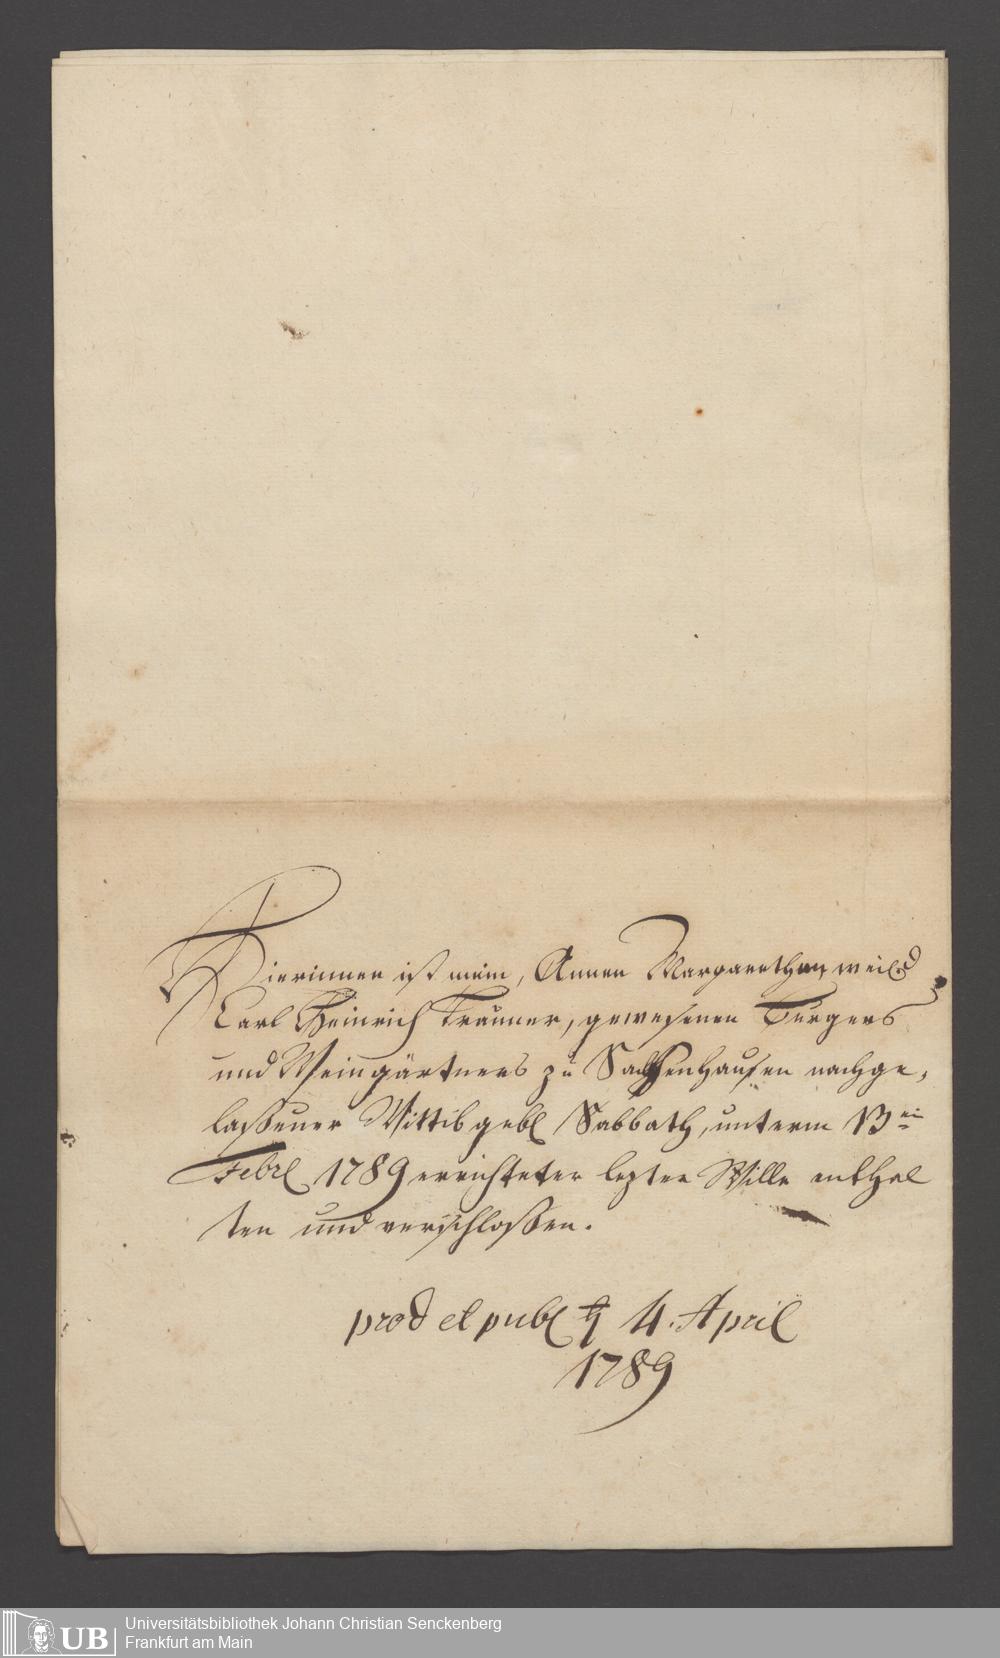 Hierinnen ist mein, Annen Margarethen, weild
Carl Heinrich Trauner, gewesenen Burgers
und Weingärtners zu Sachsenhausen nachge,
laßener Wittib gebl Sabbath, unterm 13ten
Febrl 1789 errichteter lezter Wille enthal
ten und verschloßen.
prod et publ 4. April
1789
UB
Universitätsbibliothek Johann Christian Senckenberg
Frankfurt am Main